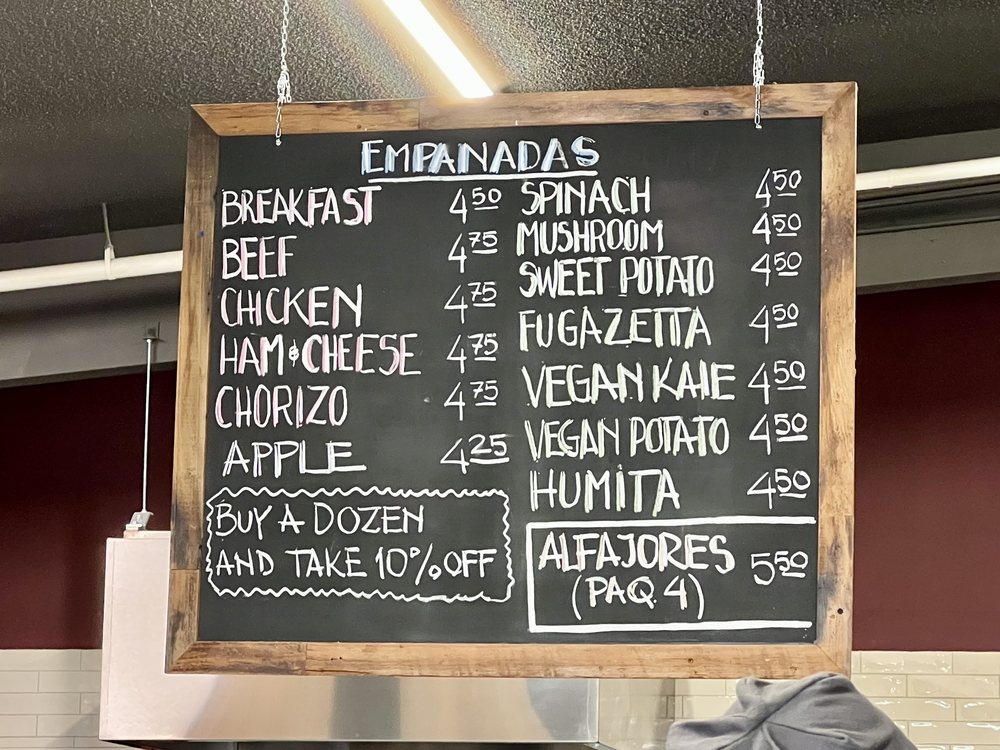 EMPANADAS
BREAKFAST 4.50
BEEF 4.75
CHICKEN 4.75
HAM & CHEESE 4.75
CHORIZO 4.75
APPLE 4.25
BUY A DOZEN
AND TAKE 10% OFF
SPINACH 4.50
MUSHROOM 4.50
SWEET POTATO 4.50
FUGAZETTA 4.50
VEGAN KALE 4.50
VEGAN POTATO 4.50
HUMITA 4.50
ALFAJORES 5.50
(PAQ. 4)